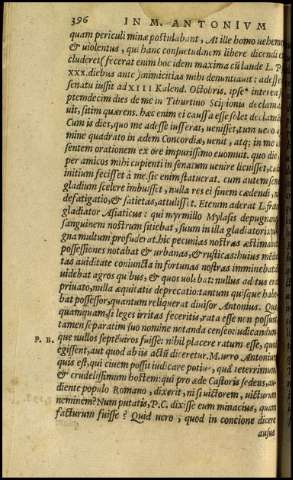 396 IN M. ANTONIVM
quam periculi mina postulabant, At ille homo uehemens
& uiolentus, qui hanc consuetudinem libere dicendi
cluderet: fecerat enim hoc idem maxima cũ laude L. P
XXX. diebus ante, inimicitias mihi denuntiauit: adesse
senatu iussit ad XIII Kalend. Octobris. ipse interea
ptemdecim dies de me in Tiburtino Scipionis declama
uit, sitim quærens. hæc enim ei causa esse solet declamandi
Cum is dies, quo me adesse iusserat, uenisset, tum uero
mine quadrato in ædem Concordiæ uenit, atq; in me
sentem orationem ex ore impurissimo euomuit. quo die
per amicos mihi cupienti in senatum uenire licuisset,
initium fecisset à me. sic enim statuerat. cum autem
gladium scelere imbuisset, nulla res ei finem cædendi
defatigatio, & satietas, attulisset. Etenim aderat L. frater
gladiator Asiaticus: qui myrmillo Mylasis depugnarat
sanguinem nostrum sitiebat, suum in illa gladiatoria
gna multum profuderat. hic pecunias nostras æstimabat
possessiones notabat & urbanas, & rusticas: huius
tas auiditate coniuncta in fortunas nostras imminebat
uidebat agros quibus, & quos uolebat: nullus aditus erat
priuato, nulla æquitatis deprecatio. tantum quisque
bat possessor, quantum reliquerat diuisor Antonius.
quamquam, si leges irritas feceritis, rata esse non possunt
tamen separatim suo nomine notanda censeo: iudicandum
P. B. que nullos septẽuiros fuisse: nihil placere ratum esse, quod
egissent, aut quod ab iis actũ diceretur. M. uero Antonium
quis est, qui ciuem possit iudicare potius, quàm teterrimum
& crudelissimum hostem: qui pro æde Castoris sedens, au-
diente populo Romano, dixerit, nisi uictorem, uicturum
neminem? Num putatis, P. C. dixisse eum minacius, quàm
facturum fuisse? Quid uero, quod in concione dicere
ausus